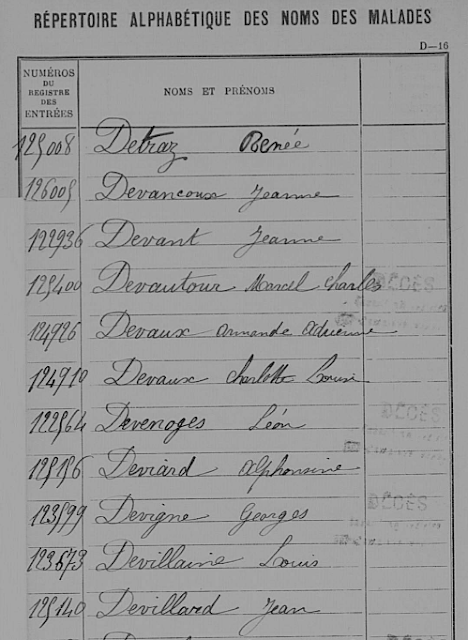 RÉPERTOIRE ALPHABÉTIQUE DES NOMS DES MALADES
D—16
NUMÉROS
DU
REGISTRE
DES
ENTRÉES
NOMS ET PRÉNOMS
125008 Detraz Renée
126005 Devancoux Jeanne
122936 Devant Jeanne
125400 Devautour Marcel Charles DÉCÈS
124926 Devaux Armande Adrienne
124910 Devaux Charlotte Louise
122564 Devenoges Léon DÉCÈS
125156 Deviard Alphonsine
123599 Devigne Georges DÉCÈS
123673 Devillaine Louis
125140 Devillard Jean